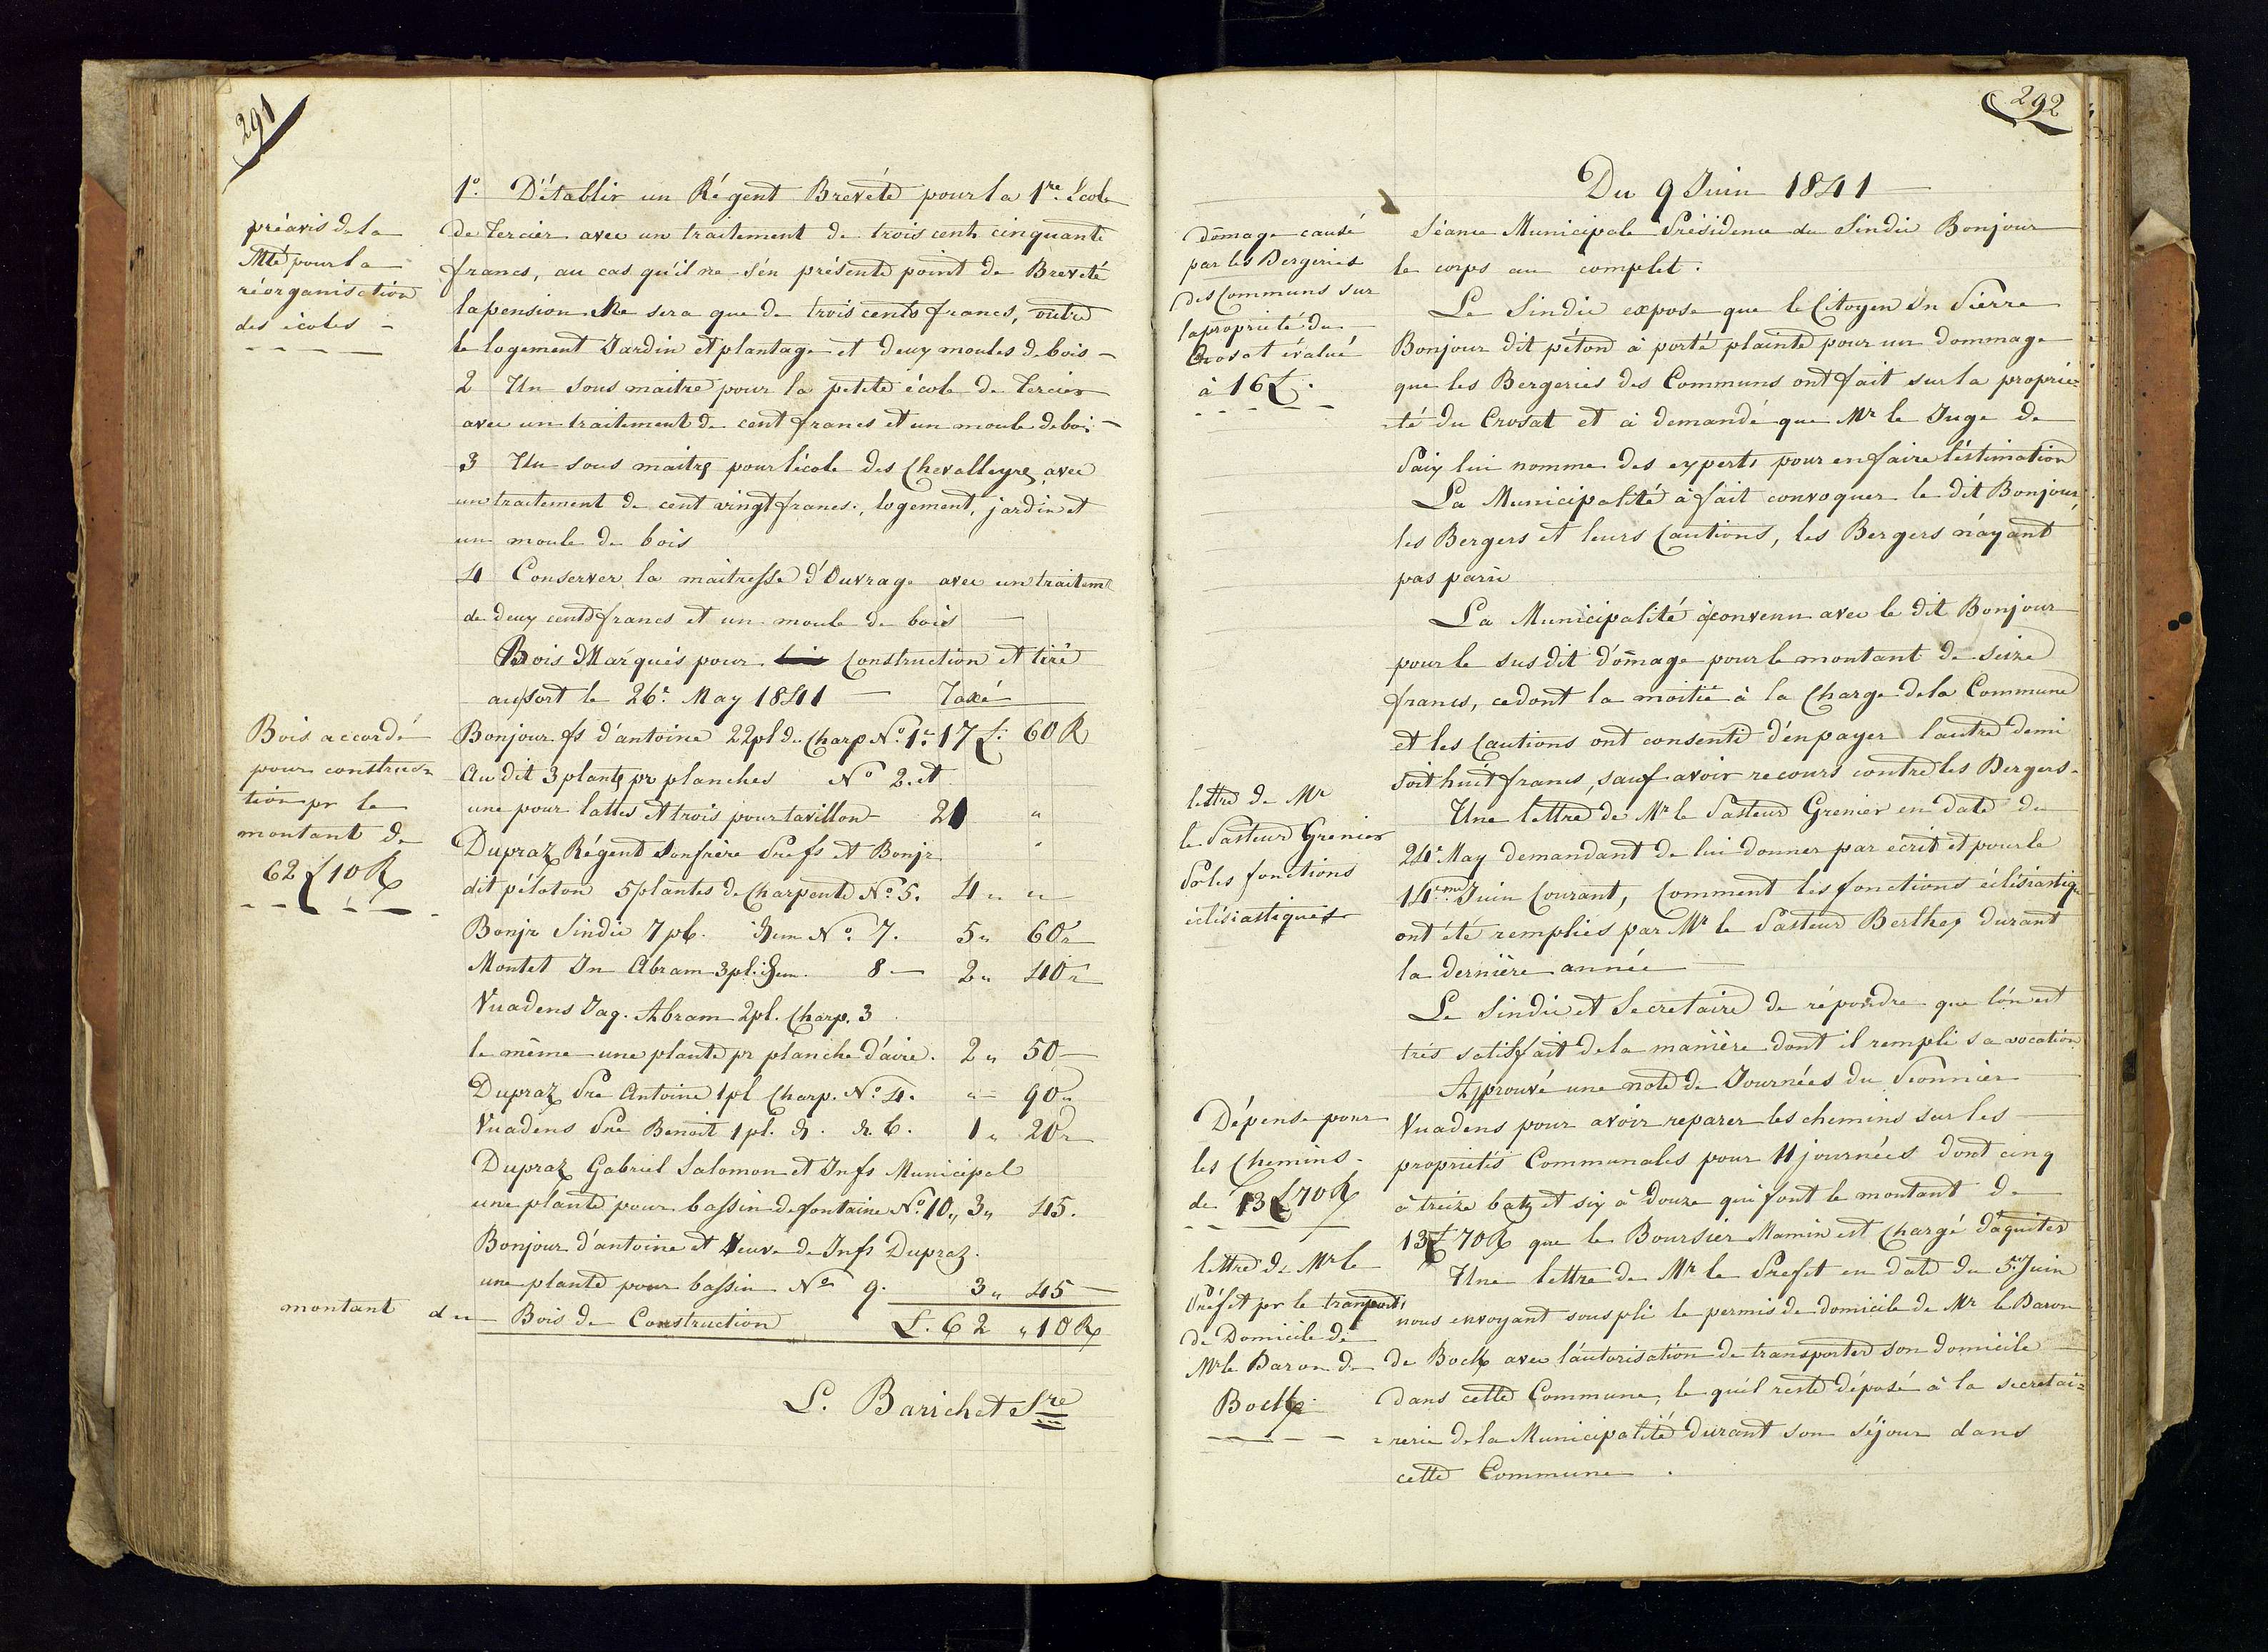 291
préavis de la
Mté pour la
réorganisation
des écoles -
1º. D'établir un Régent Breveté pour la 1re. École
de Tercier avec un traitement de trois cents cinquante
francs, au cas qu'il ne s'en présente point de Breveté
la pension Ne sera que de trois cents francs, outre
le logement Jardin et plantage et deux moules de bois -
2 Un sous maitre pour la petite école de Tercier
avec un traitement de cent francs et un moule de bois -
3 Un sous maitre pour l'école des Chevalleyre avec
un traitement de cent vingt francs, logement, jardin et
un moule de bois
4 Conserver la maitresse d'Ouvrage avec un traitemt
de deux cents francs et un moule de bois
Bois Marqués pour Construction et tiré
au sort le 26e. May 1841 - Taxé
Bois accordé
pour construc
tion pr le
montant de
62 £ 10 R
Bonjour fs d'antoine 22 pl de Charp Nº. 1er. 17 £. 60 R
Au dit 3 plantes pr planches Nº 2. et
une pour lattes et trois pour tavillon - 21 "
Dupraz Régent son frère Pre fs et Bonjr "
dit péloton 5 plantes de Charpente Nº. 5. 4 " "
Bonjr Sindic 7 pl. idem Nº. 7. 5 " 60 "
Montet Jn Abram 3 pl. idem. 8 - 2 " 40 "
Vuadens Jaq. Abram 2 pl. Charp. 3
le même une plante pr planche d'aire. 2 " 50 -
Dupraz Pre Antoine 1 pl Charp. Nº. 4. " = 90 "
Vuadens Pre Benoit 1 pl. d. d. 6. 1 " 20 "
Dupraz Gabriel Salomon et Jn fs Municipal
une plante pour bassin de fontaine Nº. 10 " 3 " 45.
Bonjour d'antoine et Veuve de Jn fs Dupraz.
une plante pour bassin Nº 9. 3 " 45 -
montant du Bois de Construction £. 62 " 10 R
L. Barichet Sre
292
Du 9 Juin 1841 -
Séance Municipale Présidence du Sindic Bonjour
le corps au complet.
Dômage causé
par les Bergeries
des Communs sur
la propriété du
Crosat évalué
à 16 £.
Le Sindic expose que le Citoyen Jn Pierre
Bonjour dit péton à porté plainte pour un dommage
que les Bergeries des Communs ont fait sur la proprié=
=té du Crosat et à demandé que Mr le Juge de
Paix lui nomme des experts pour en faire l'éstimation
La Municipalité à fait convoquer le dit Bonjour,
les Bergers et leurs Cautions, les Bergers n'ayant
pas parû
La Municipalité à convenu avec le dit Bonjour
pour le sus dit dômage pour le montant de seize
francs, ce dont la moitié à la Charge de la Commune
et les Cautions ont consenti d'en payer l'autre demi
soit huit francs, sauf avoir recours contre les Bergers.
lettre de Mr
le Pasteur Grenier
Pr les fonctions
éclésiastiques
Une lettre de Mr le Pasteur Grenier en date du
24e May demandant de lui donner par écrit et pour le
14eme Juin Courant, Comment les fonctions éclésiastiqu
ont été remplies par Mr le Pasteur Berthex durant
la dernière année -
Le Sindic et Secretaire de répondre que l'on est
très satisfait de la manière dont il rempli sa vocation
Dépense pour
les Chemins -
de 13 £ 70 R
Approuvé une note de Journées du Pionnier
Vuadens pour avoir reparer les chemins sur les
propriétés Communales pour 11 journées dont cinq
à treize batz et six à douze qui font le montant de
13 £ 70 R que le Boursier Mamin est Chargé d'aquiter
lettre de Mr le
Préfet pr le transport
de Domicile de
Mr le Baron de
Bock
Une lettre de Mr le Prefet en date du 5e Juin
nous envoyant sous pli le permis de domicile de Mr le Baron
de Bock avec l'autorisation de transporter son domicile
dans cette Commune, le quél reste déposé à la secretai=
=rerie de la Municipalité durant son séjour dans
cette Commune.